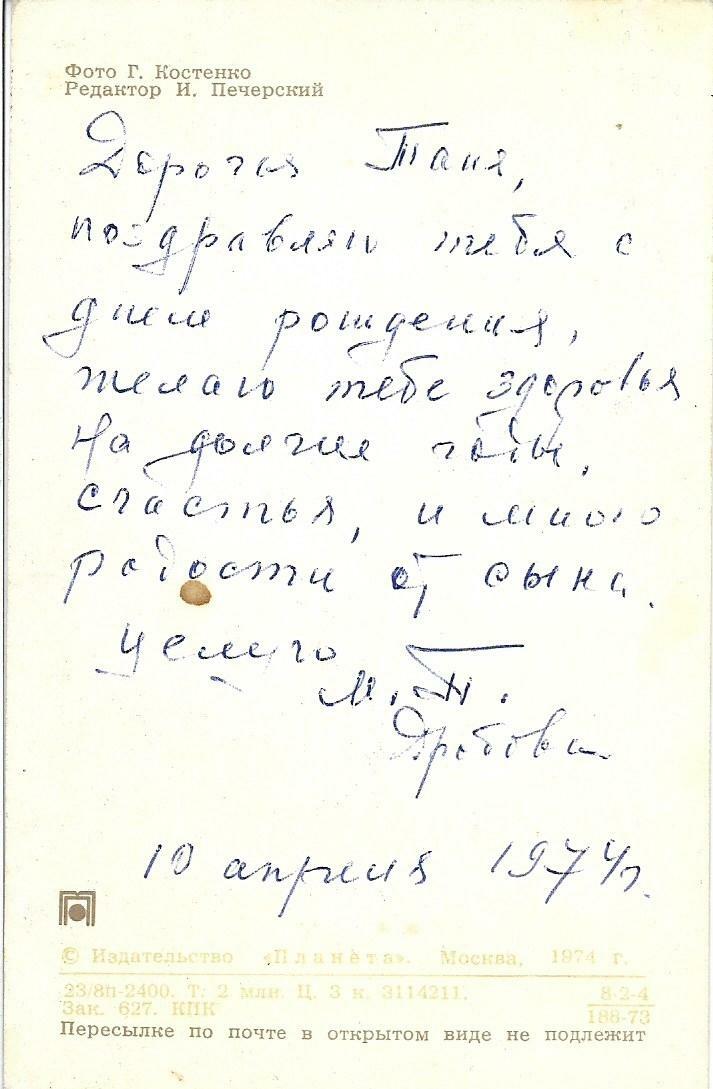 Фото Г. Костенко
Редактор И. Печерский
Дорогая Таня,
поздравляю тебя с
днем рождения,
желаю тебе здоровья
на долгие годы,
счастья, и много
радости от сына.
Целую
М. Т.
10 апреля 1974 г.
© Издательство «Планета». Москва, 1974 г.
23/8п-2400. Т. 2 млн. Ц. 3 к. 3114211. 8-2-4
Зак. 627. КПК 188-73
Пересылке по почте в открытом виде не подлежит